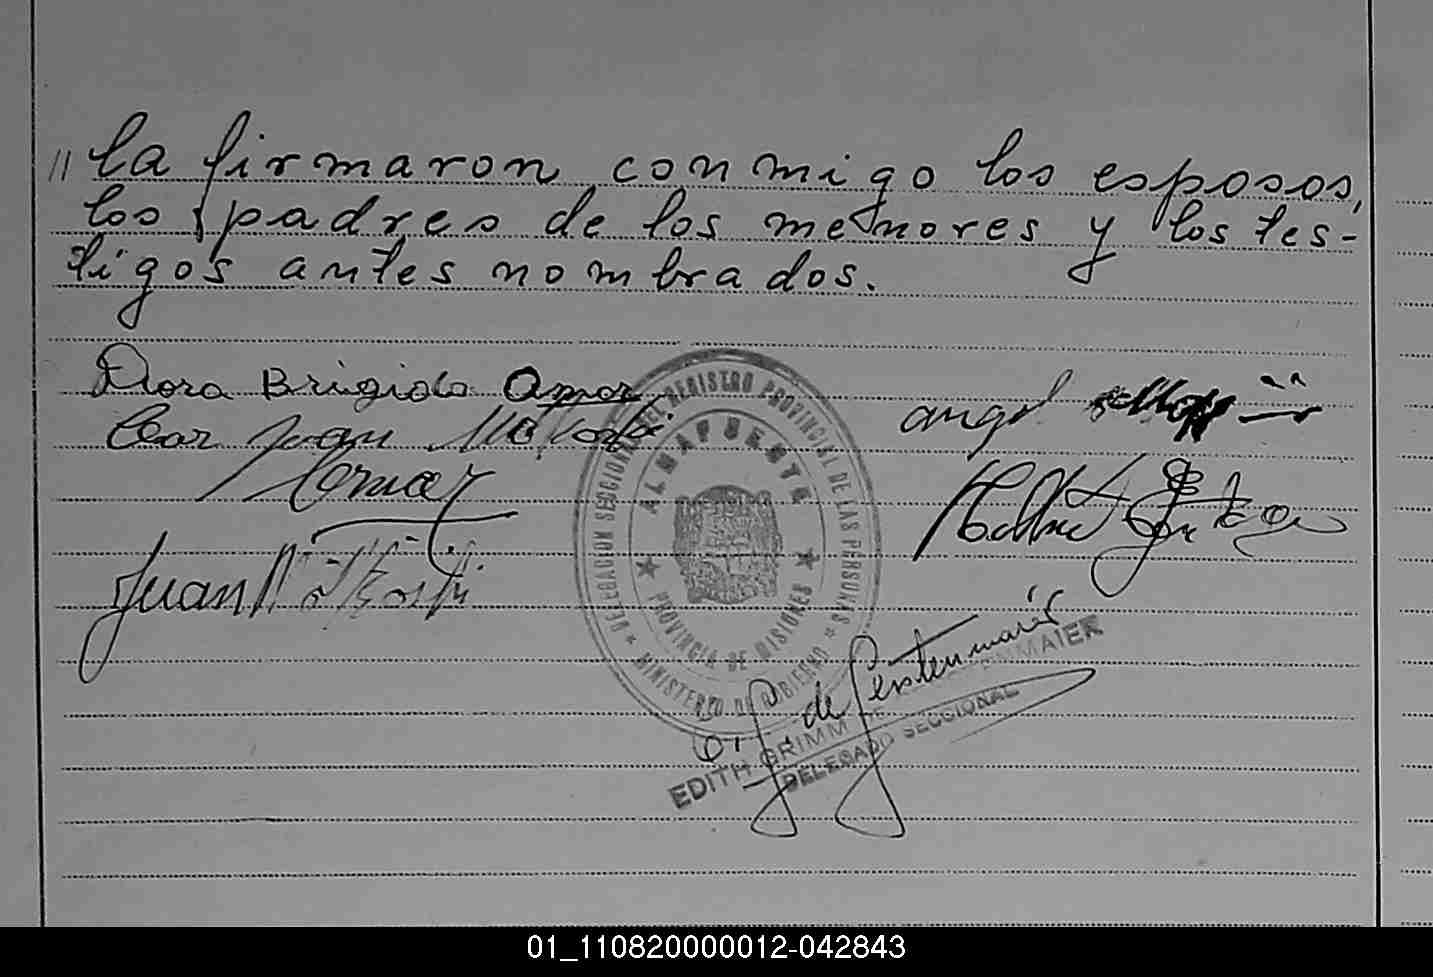 // la firmaron conmigo los esposos,
los padres de los menores y los tes-
tigos antes nombrados.
Dora Brigida Amor
Juan
angel
DELEGACION SECCIONAL DEL REGISTRO PROVINCIAL DE LAS PERSONAS
ALMAFUERTE
PROVINCIA DE MISIONES
MINISTERIO DE GOBIERNO
E. G. de Gerstenmaier
EDITH GRIMM DE GERSTENMAIER
DELEGADO SECCIONAL
01_110820000012-042843